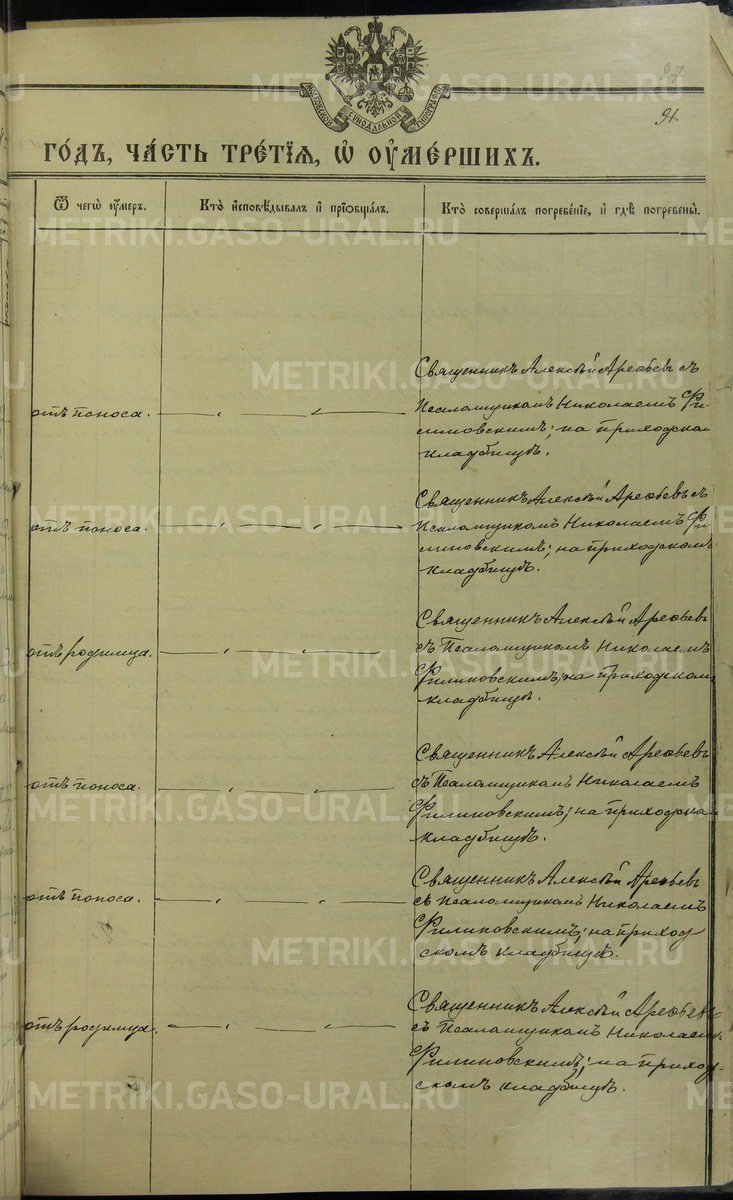 METRIKI.GASO-URAL.RU
91.
МОСКОВСКОЙ СѴНОДАЛЬНОЙ ТИПОГРАФІИ
ГО́ДЪ, ЧА́СТЬ ТРЕ́ТІѦ, Ѽ ОУ҆МЕ́РШИХЪ.
Ѿ чегѡ̀ ᲂу҆́меръ.
Кто̀ и҆сповѣ́дывалъ и҆ прїѻбща́лъ.
Кто̀ соверша́лъ погребе́нїе, и҆ гдѣ̀ погребены̀.
отъ поноса.
Священникъ Алексѣй Арефьевъ съ
Псаломщикомъ Николаемъ Фи-
линовскимъ; на приходском
кладбищѣ.
отъ поноса.
Священникъ Алексѣй Арефьевъ съ
Псаломщикомъ Николаемъ Фи
линовскимъ; на приходскомъ
кладбищѣ.
отъ родимца.
Священникъ Алексѣй Арефьевъ
съ Псаломщикомъ Николаемъ
Филиновскимъ; на приходском
кладбищѣ.
отъ поноса.
Священникъ Алексѣй Арефьевъ
съ Псаломщикомъ Николаемъ
Филиновскимъ; на приходском
кладбищѣ.
отъ поноса.
Священникъ Алексѣй Арефьевъ
съ псаломщикомъ Николаемъ
Филиновскимъ; на приход
скомъ кладбищѣ.
отъ родимца.
Священникъ Алексѣй Арефьевъ
съ Псаломщикомъ Николаемъ
Филиновскимъ; на приход-
скомъ кладбищѣ.